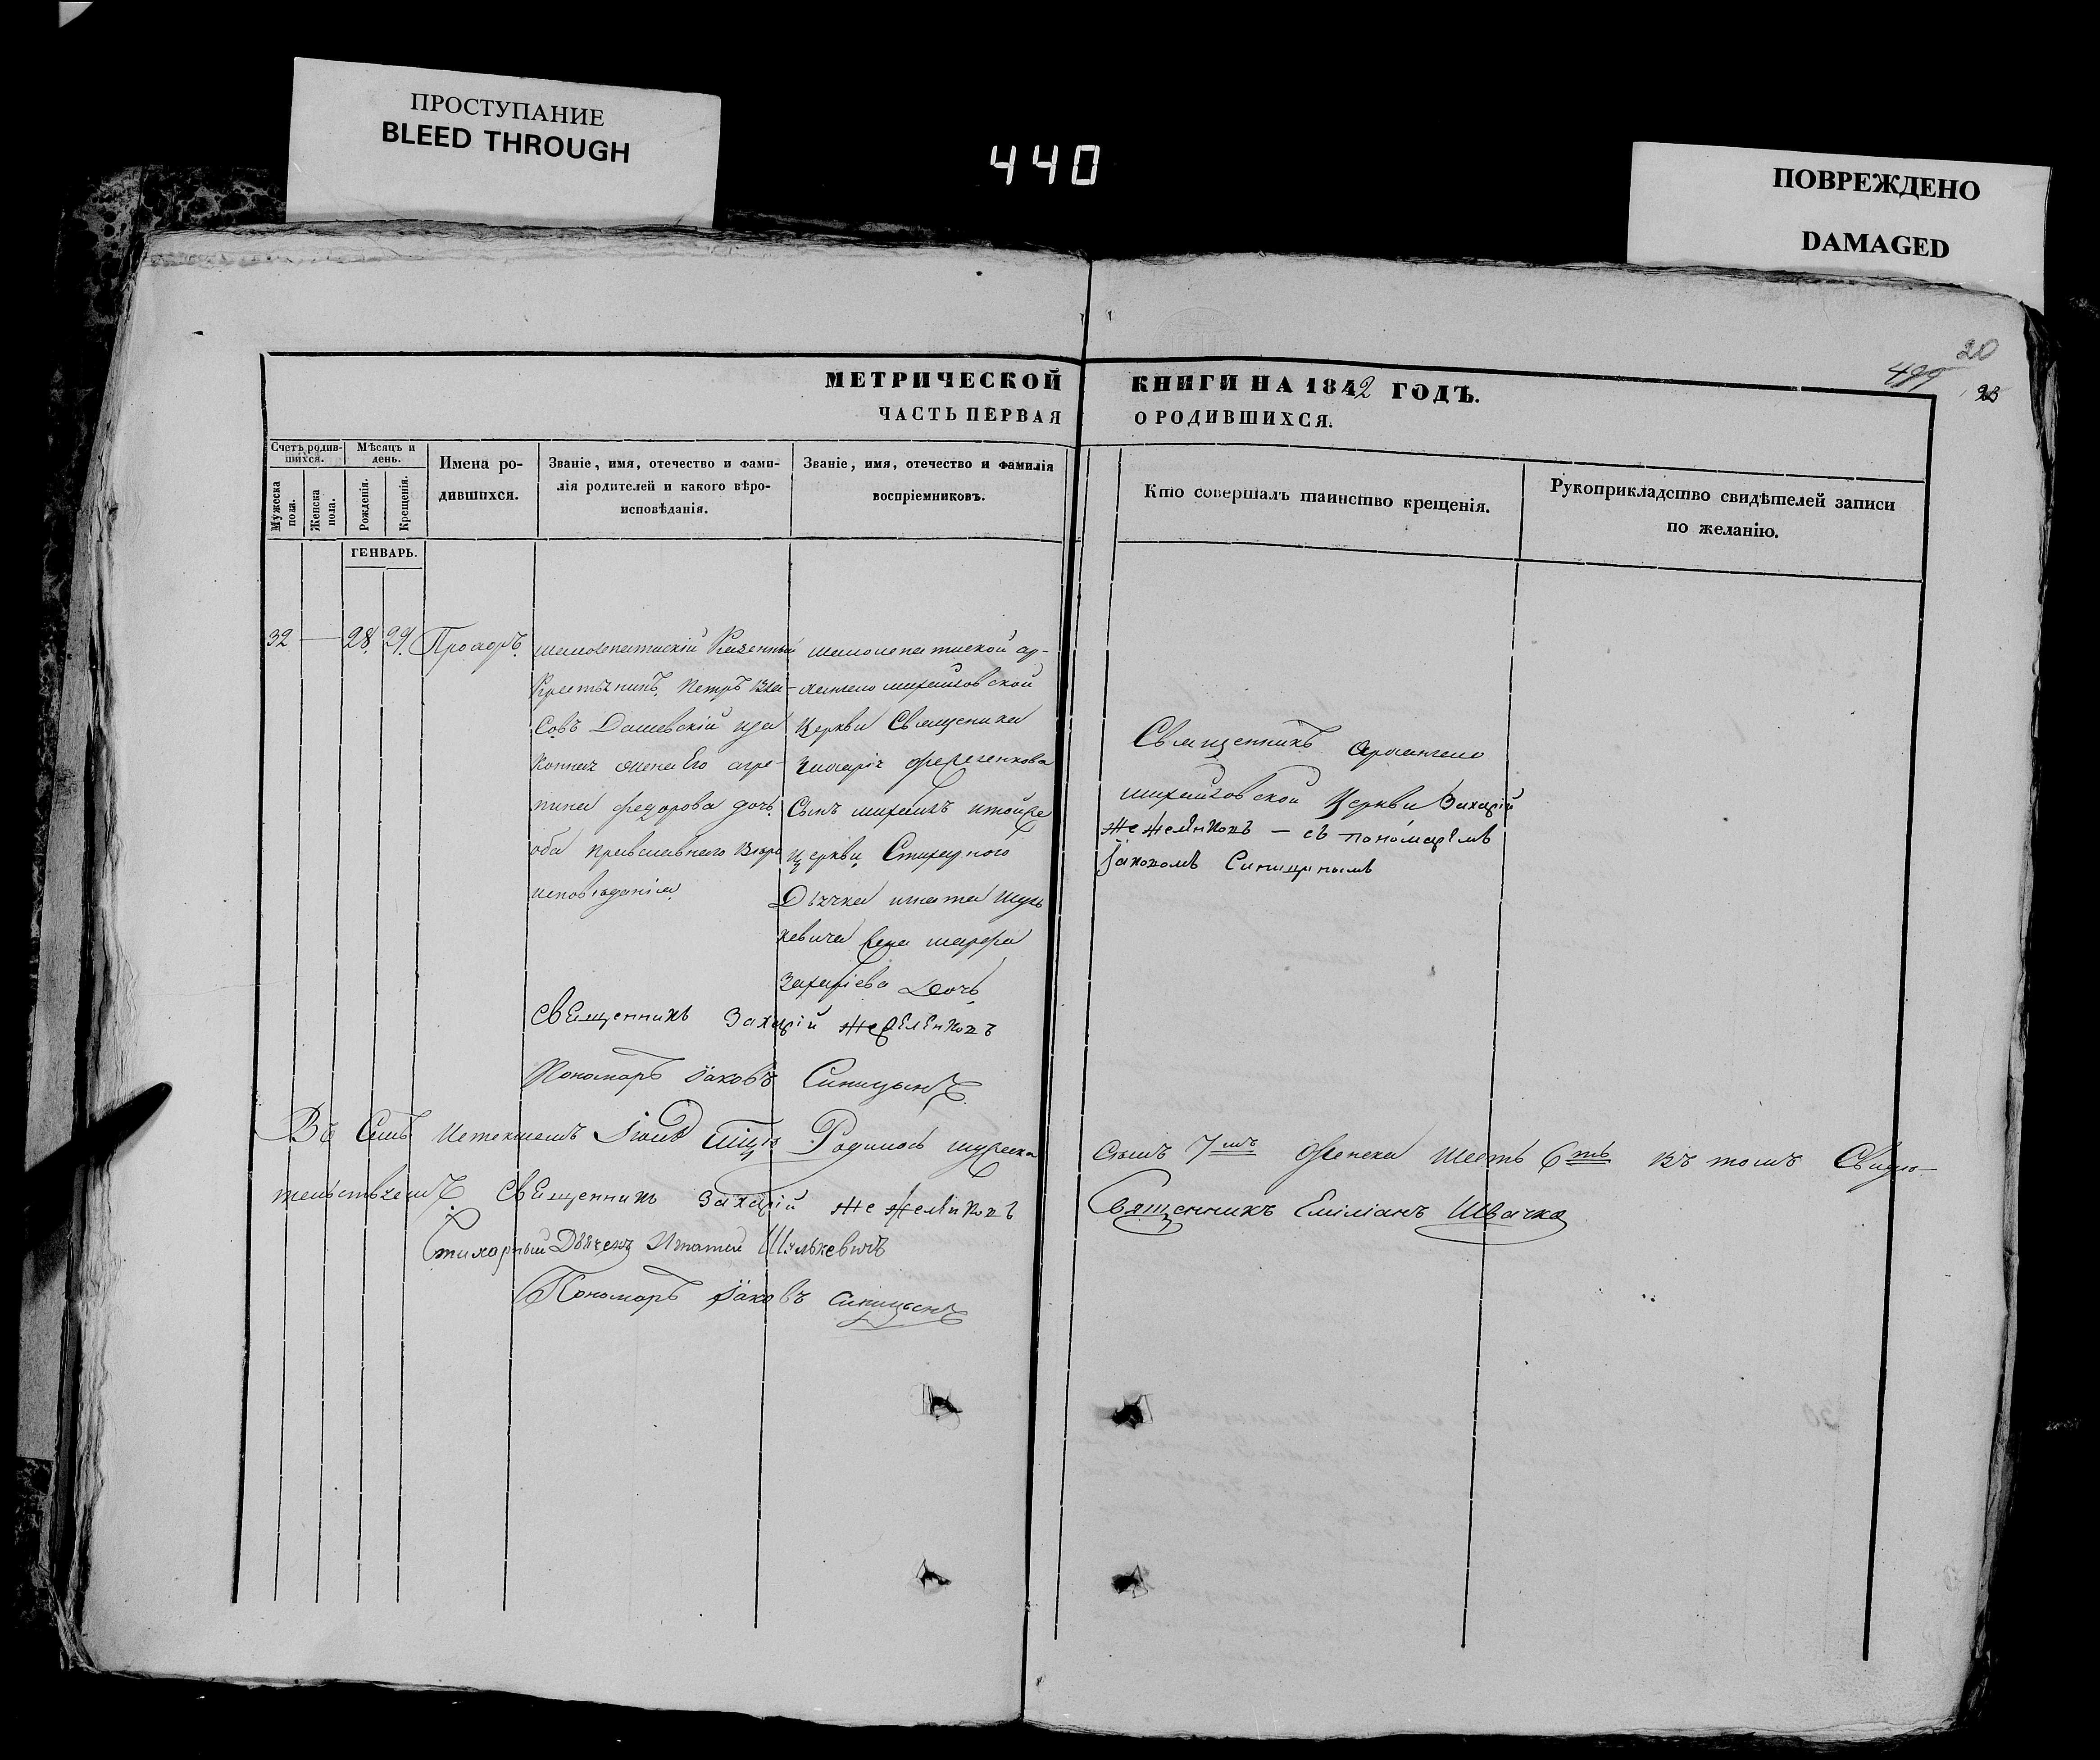 ПРОСТУПАНИЕ
BLEED THROUGH
440
ПОВРЕЖДЕНО
DAMAGED
20
23
МЕТРИЧЕСКОЙ КНИГИ НА 1842 ГОДЪ.
ЧАСТЬ ПЕРВАЯ О РОДИВШИХСЯ.
Счетъ родив-
шихся.
Мужеска
пола.
Женска
пола.
Мѣсяцъ и
день.
Рожденія.
Крещенія.
Имена ро-
дившихся.
Званіе, имя, отечество и фами-
лія родителей и какого вѣро-
исповѣданія.
Званіе, имя, отечество и фамилія
воспріемниковъ.
Кто совершалъ таинство крещенія.
Рукоприкладство свидѣтелей записи
по желанію.
ГЕНВАРЬ.
32 — 28. 29.
Казенный
Крестьнинъ, Петръ Вла-
совъ Дашевскій иза
жена Его агре-
пина федорова дочь
оба православнаго вѣро
исповѣданія
ар-
хангело михайловской
Церкви Священика
Сынъ михаилъ итойже
церкви Стихарного
Дьячка игнатія Шуль
кевича жена марфа
Захаріева Дочь
Священникъ Архангело
михайловской Церкви Захарій
— съ пономарІомъ
Іаковомъ Синицинымъ
свЕщенникъ Захарій
Пономарь Іаковъ Синицынъ
Въ Семъ Истекшемъ Родилось мужеска
семъ 7мъ женска Шесть 6ть въ томъ Свидѣ-
тельствуемъ. свЕщенникъ Захарій
Священникъ Еміліанъ Швачка
Стихарный Дьячекъ Игнатій Шулькевичъ
Пономарь Іаковъ Синицынъ